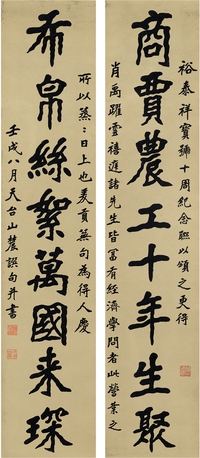 商賈農工十年生聚
裕泰祥寶號十周紀念聯以頌之更得
肖禹躍雲禧進諸先生皆富有經濟學問者此營業之
布帛絲絮萬國來琛
所以蒸蒸日上也爰貢蕪句為得人慶
壬戌八月天台山農譔句并書